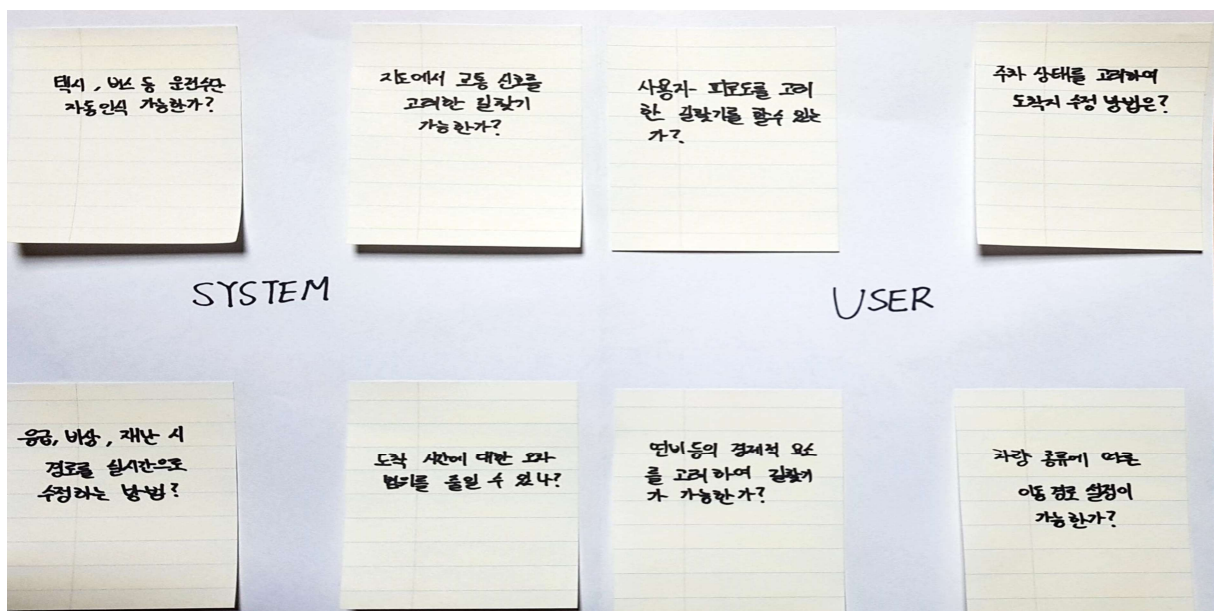 택시, 버스 등 운전수단
자동인식 가능한가?
지도에서 교통 신호를
고려한 길찾기
가능한가?
사용자 피로도를 고려
한 길찾기를 할 수 있는
가?
주차 상태를 고려하여
도착지 수정 방법은?
SYSTEM
USER
응급, 비상, 재난 시
경로를 실시간으로
수정하는 방법?
도착 시간에 대한 오차
범위를 줄일 수 있나?
연비 등의 경제적 요소
를 고려하여 길찾기
가 가능한가?
차량 종류에 따른
이동 경로 설정이
가능한가?